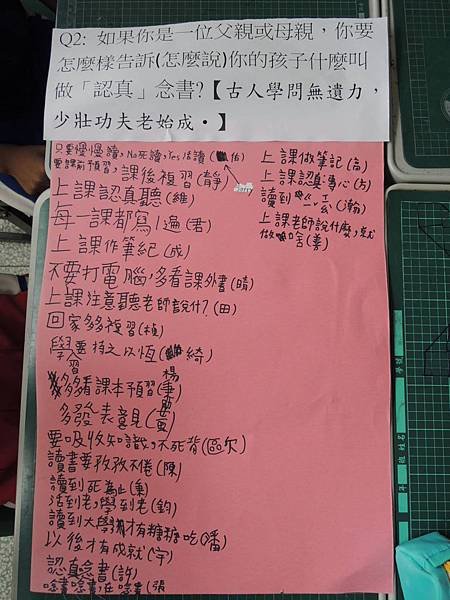 Q2: 如果你是一位父親或母親，你要
怎麼樣告訴(怎麼說)你的孩子什麼叫
做「認真」念書?【古人學問無遺力，
少壯功夫老始成。】
只要慢慢讀，No死讀，Yes活讀(佑)
要課前預習，課後複習(靜)
上課認真聽(維)
每一課都寫1遍(君)
上課作筆紀(成)
不要打電腦，多看課外書(晴)
上課注意聽老師說什?(田)
回家多多複習(植)
學習要持之以恆(綺)
多多看課本預習(楊
多發表意見(
要吸收知識，不死背(歐)
讀書要孜孜不倦(陳)
讀到死為止(秉)
活到老，學到老(鈞)
讀到大學才有糖糖吃(潘)
以後才有成就(宇)
認真念書(許)
唸書唸書，在唸書(張
上課做筆記(高)
上課認真專心(占)
讀到(瀚)
上課老師說什麼，就
做啥(善)
年 班 姓名
學號